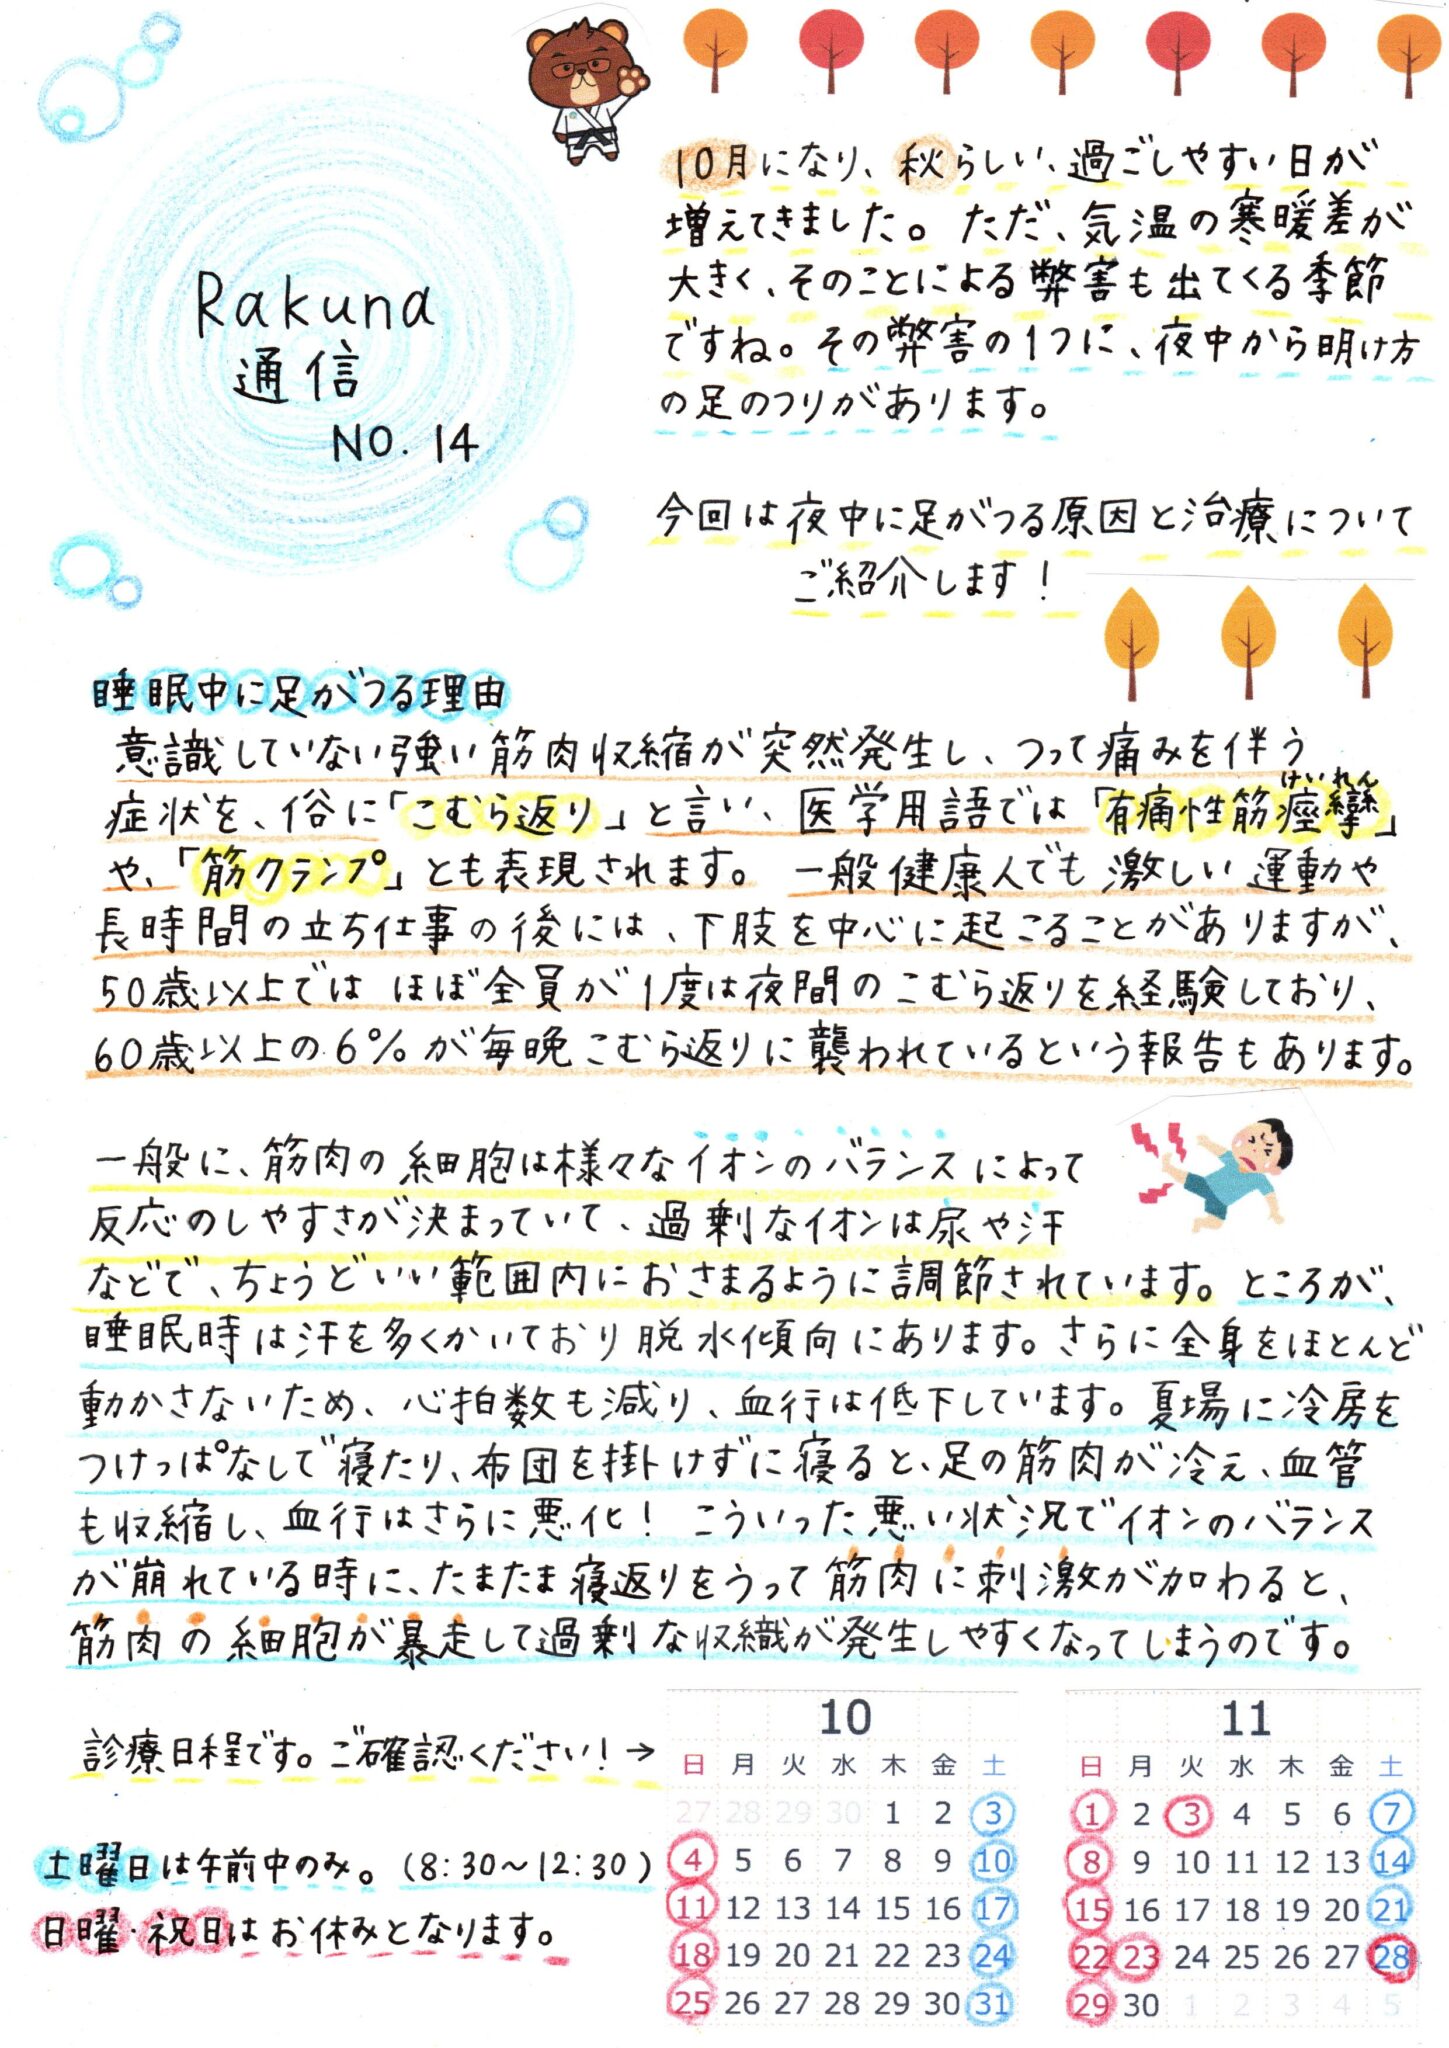 Rakuna
通信
NO. 14
10月になり、秋らしい、過ごしやすい日が
増えてきました。ただ、気温の寒暖差が
大きく、そのことによる弊害も出てくる季節
ですね。その弊害の1つに、夜中から明け方
の足のつりがあります。
今回は夜中に足がつる原因と治療について
ご紹介します！
睡眠中に足がつる理由
意識していない強い筋肉収縮が突然発生し、つって痛みを伴う
症状を、俗に「こむら返り」と言い、医学用語では「有痛性筋痙攣」
けいれん
や、「筋クランプ」とも表現されます。一般健康人でも激しい運動や
長時間の立ち仕事の後には、下肢を中心に起こることがありますが、
50歳以上ではほぼ全員が1度は夜間のこむら返りを経験しており、
60歳以上の6%が毎晩こむら返りに襲われているという報告もあります。
一般に、筋肉の細胞は様々なイオンのバランスによって
反応のしやすさが決まっていて、過剰なイオンは尿や汗
などで、ちょうどいい範囲内におさまるように調節されています。ところが、
睡眠時は汗を多くかいており脱水傾向にあります。さらに全身をほとんど
動かさないため、心拍数も減り、血行は低下しています。夏場に冷房を
つけっぱなしで寝たり、布団を掛けずに寝ると、足の筋肉が冷え、血管
も収縮し、血行はさらに悪化！こういった悪い状況でイオンのバランス
が崩れている時に、たまたま寝返りをうって筋肉に刺激が加わると、
筋肉の細胞が暴走して過剰な収縮が発生しやすくなってしまうのです。
診療日程です。ご確認ください！→
土曜日は午前中のみ。(8:30～12:30)
日曜・祝日はお休みとなります。
10
日 月 火 水 木 金 土
27 28 29 30 1 2 3
4 5 6 7 8 9 10
11 12 13 14 15 16 17
18 19 20 21 22 23 24
25 26 27 28 29 30 31
11
日 月 火 水 木 金 土
1 2 3 4 5 6 7
8 9 10 11 12 13 14
15 16 17 18 19 20 21
22 23 24 25 26 27 28
29 30 1 2 3 4 5